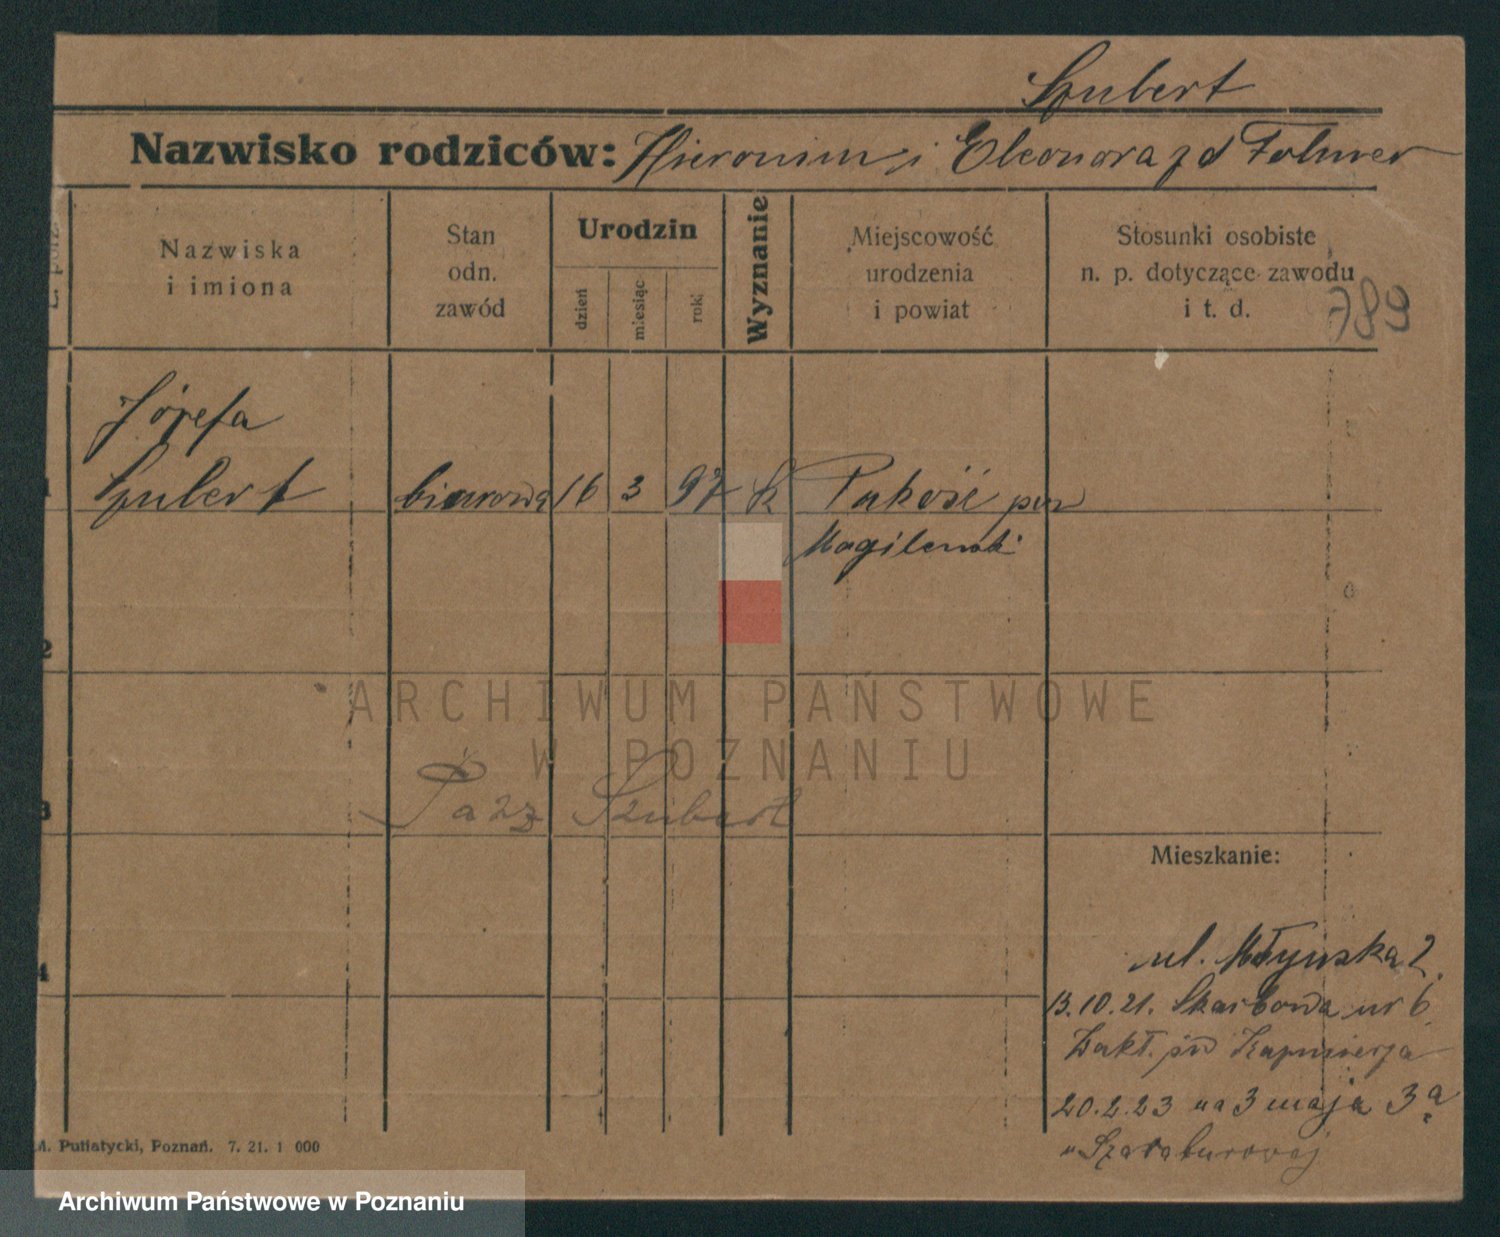 Szubert
Nazwisko rodziców: Hieronim i Eleonora zd Folmer
L. porz.
Nazwiska
i imiona
Stan
odn.
zawód
Urodzin
dzień
miesiąc
rok
Wyznanie
Miejscowość
urodzenia
i powiat
Stosunki osobiste
n. p. dotyczące zawodu
i t. d.
789
Józefa
1 Szubert biurowa 16 3 97 k Pakość pow
Mogilenski
2
ARCHIWUM PAŃSTWOWE
W POZNANIU
3
Szubert
Mieszkanie:
4
ul. Młyńska 2.
13.10.21. Skarbowa nr 6
Zakł. św Kazimierza
20.2.23 na 3 maja 3a
u
M. Putiatycki, Poznań. 7. 21. 1 000
Archiwum Państwowe w Poznaniu